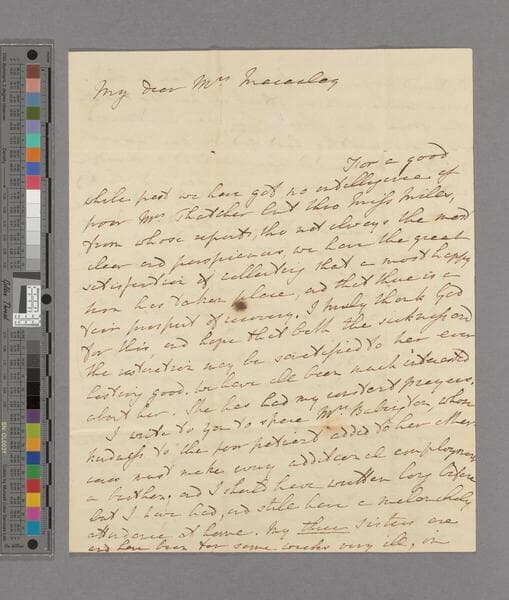 My dear Mrs Macaulay
For a good
while past we have got no intelligence of
poor Mrs Thatcher but thro Miss Mills,
from whose reports, tho not always the most
clear and perspicuous, we have the great
satisfaction of collecting that a most happy
turn has taken place and that there is a
fair prospect of recovery. I truly thank God
for this and hope that both the sickness and
the restoration may be sanctified to her ever
lasting good. We have all been much interested
about her. She has had my constant prayers.
I write to you to spare Mrs Babington, whose
kindness to the poor patient added to her other
cares must make every additional employment
a burthen. and I should have written long before
but I have had, and still have a melancholy
attendance at home. My three sisters are
and have been for some weeks very ill, in